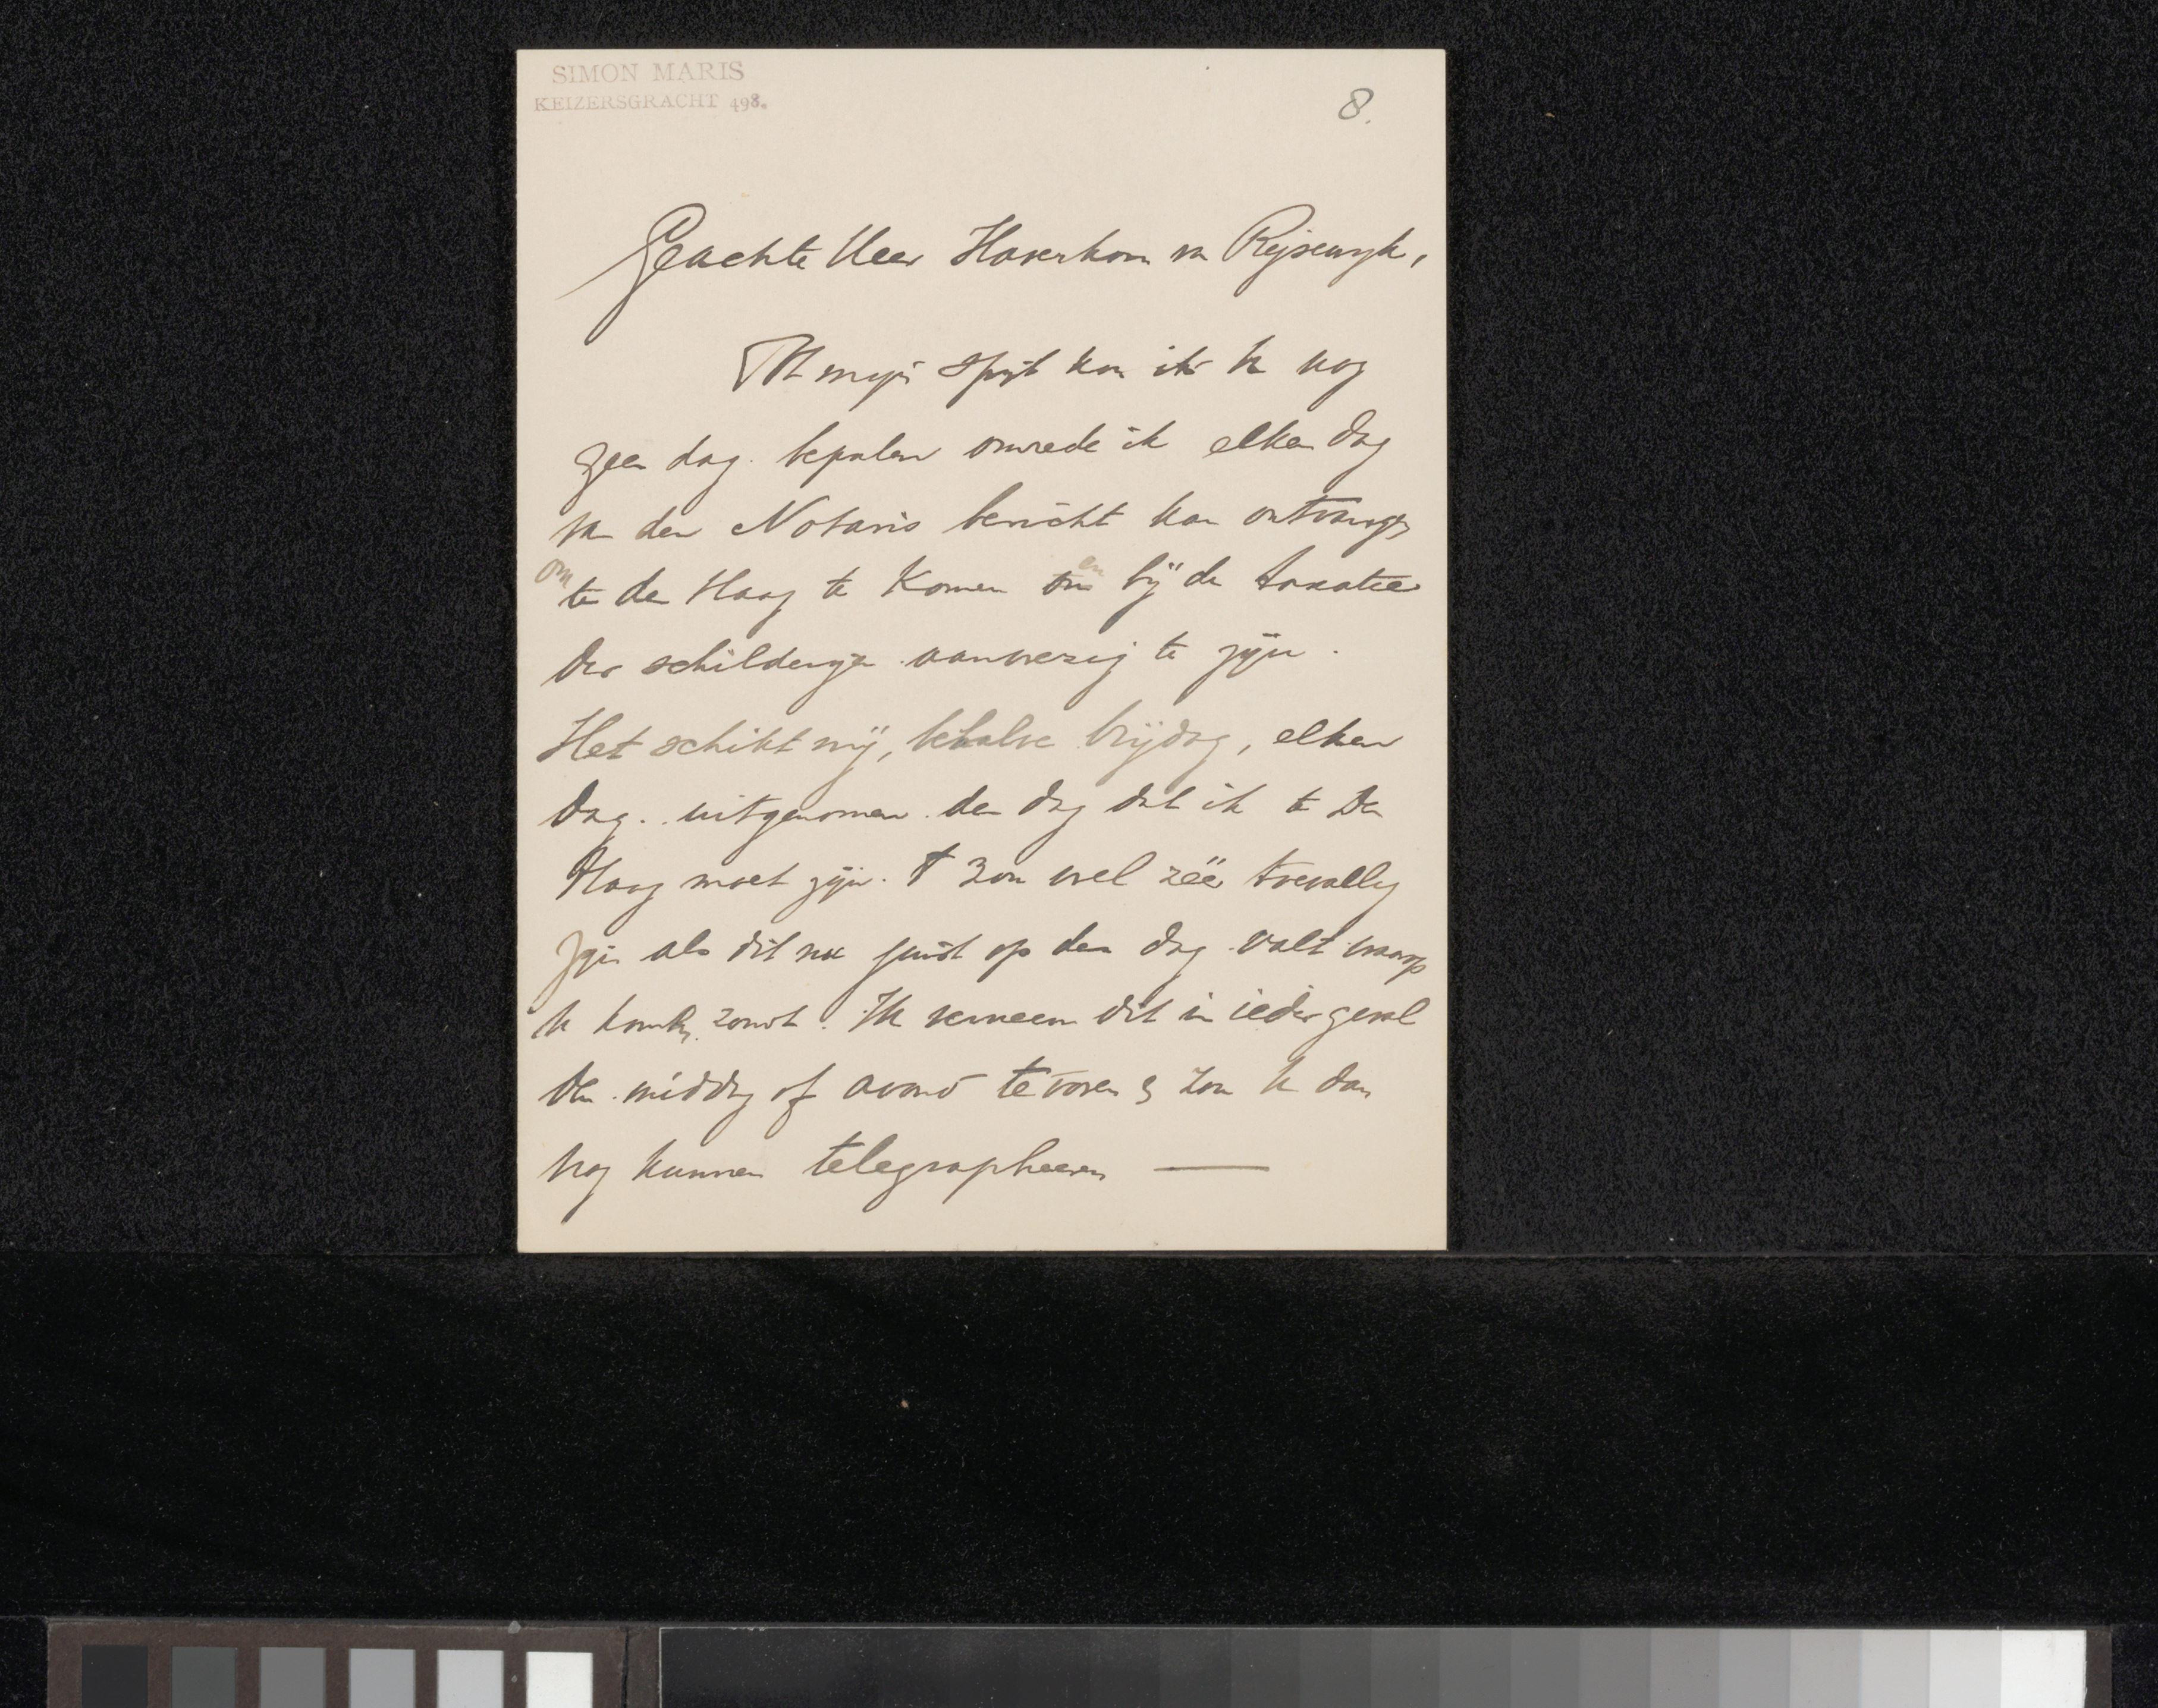 SIMON MARIS
KEIZERSGRACHT 498.
8.
Geachte Heer Haverkorn van Rijsewijk,
Tot mijn spijt kan ik U nog
geen dag bepalen omrede ik elken dag
van den Notaris bericht kan ontvangen
om te den Haag te komen en bij de taxatie
der schilderijen aanwezig te zijn.
Het schikt mij, behalve Vrijdag, elken
dag. uitgenomen den dag dat ik te Den
Haag moet zijn. 't zou wel zéér toevallig
zijn als dit nu juist op den dag valt waarop
U komen zoudt. Ik verneem dit in ieder geval
den middag of avond tevoren & zou U dan
nog kunnen telegrapheeren —